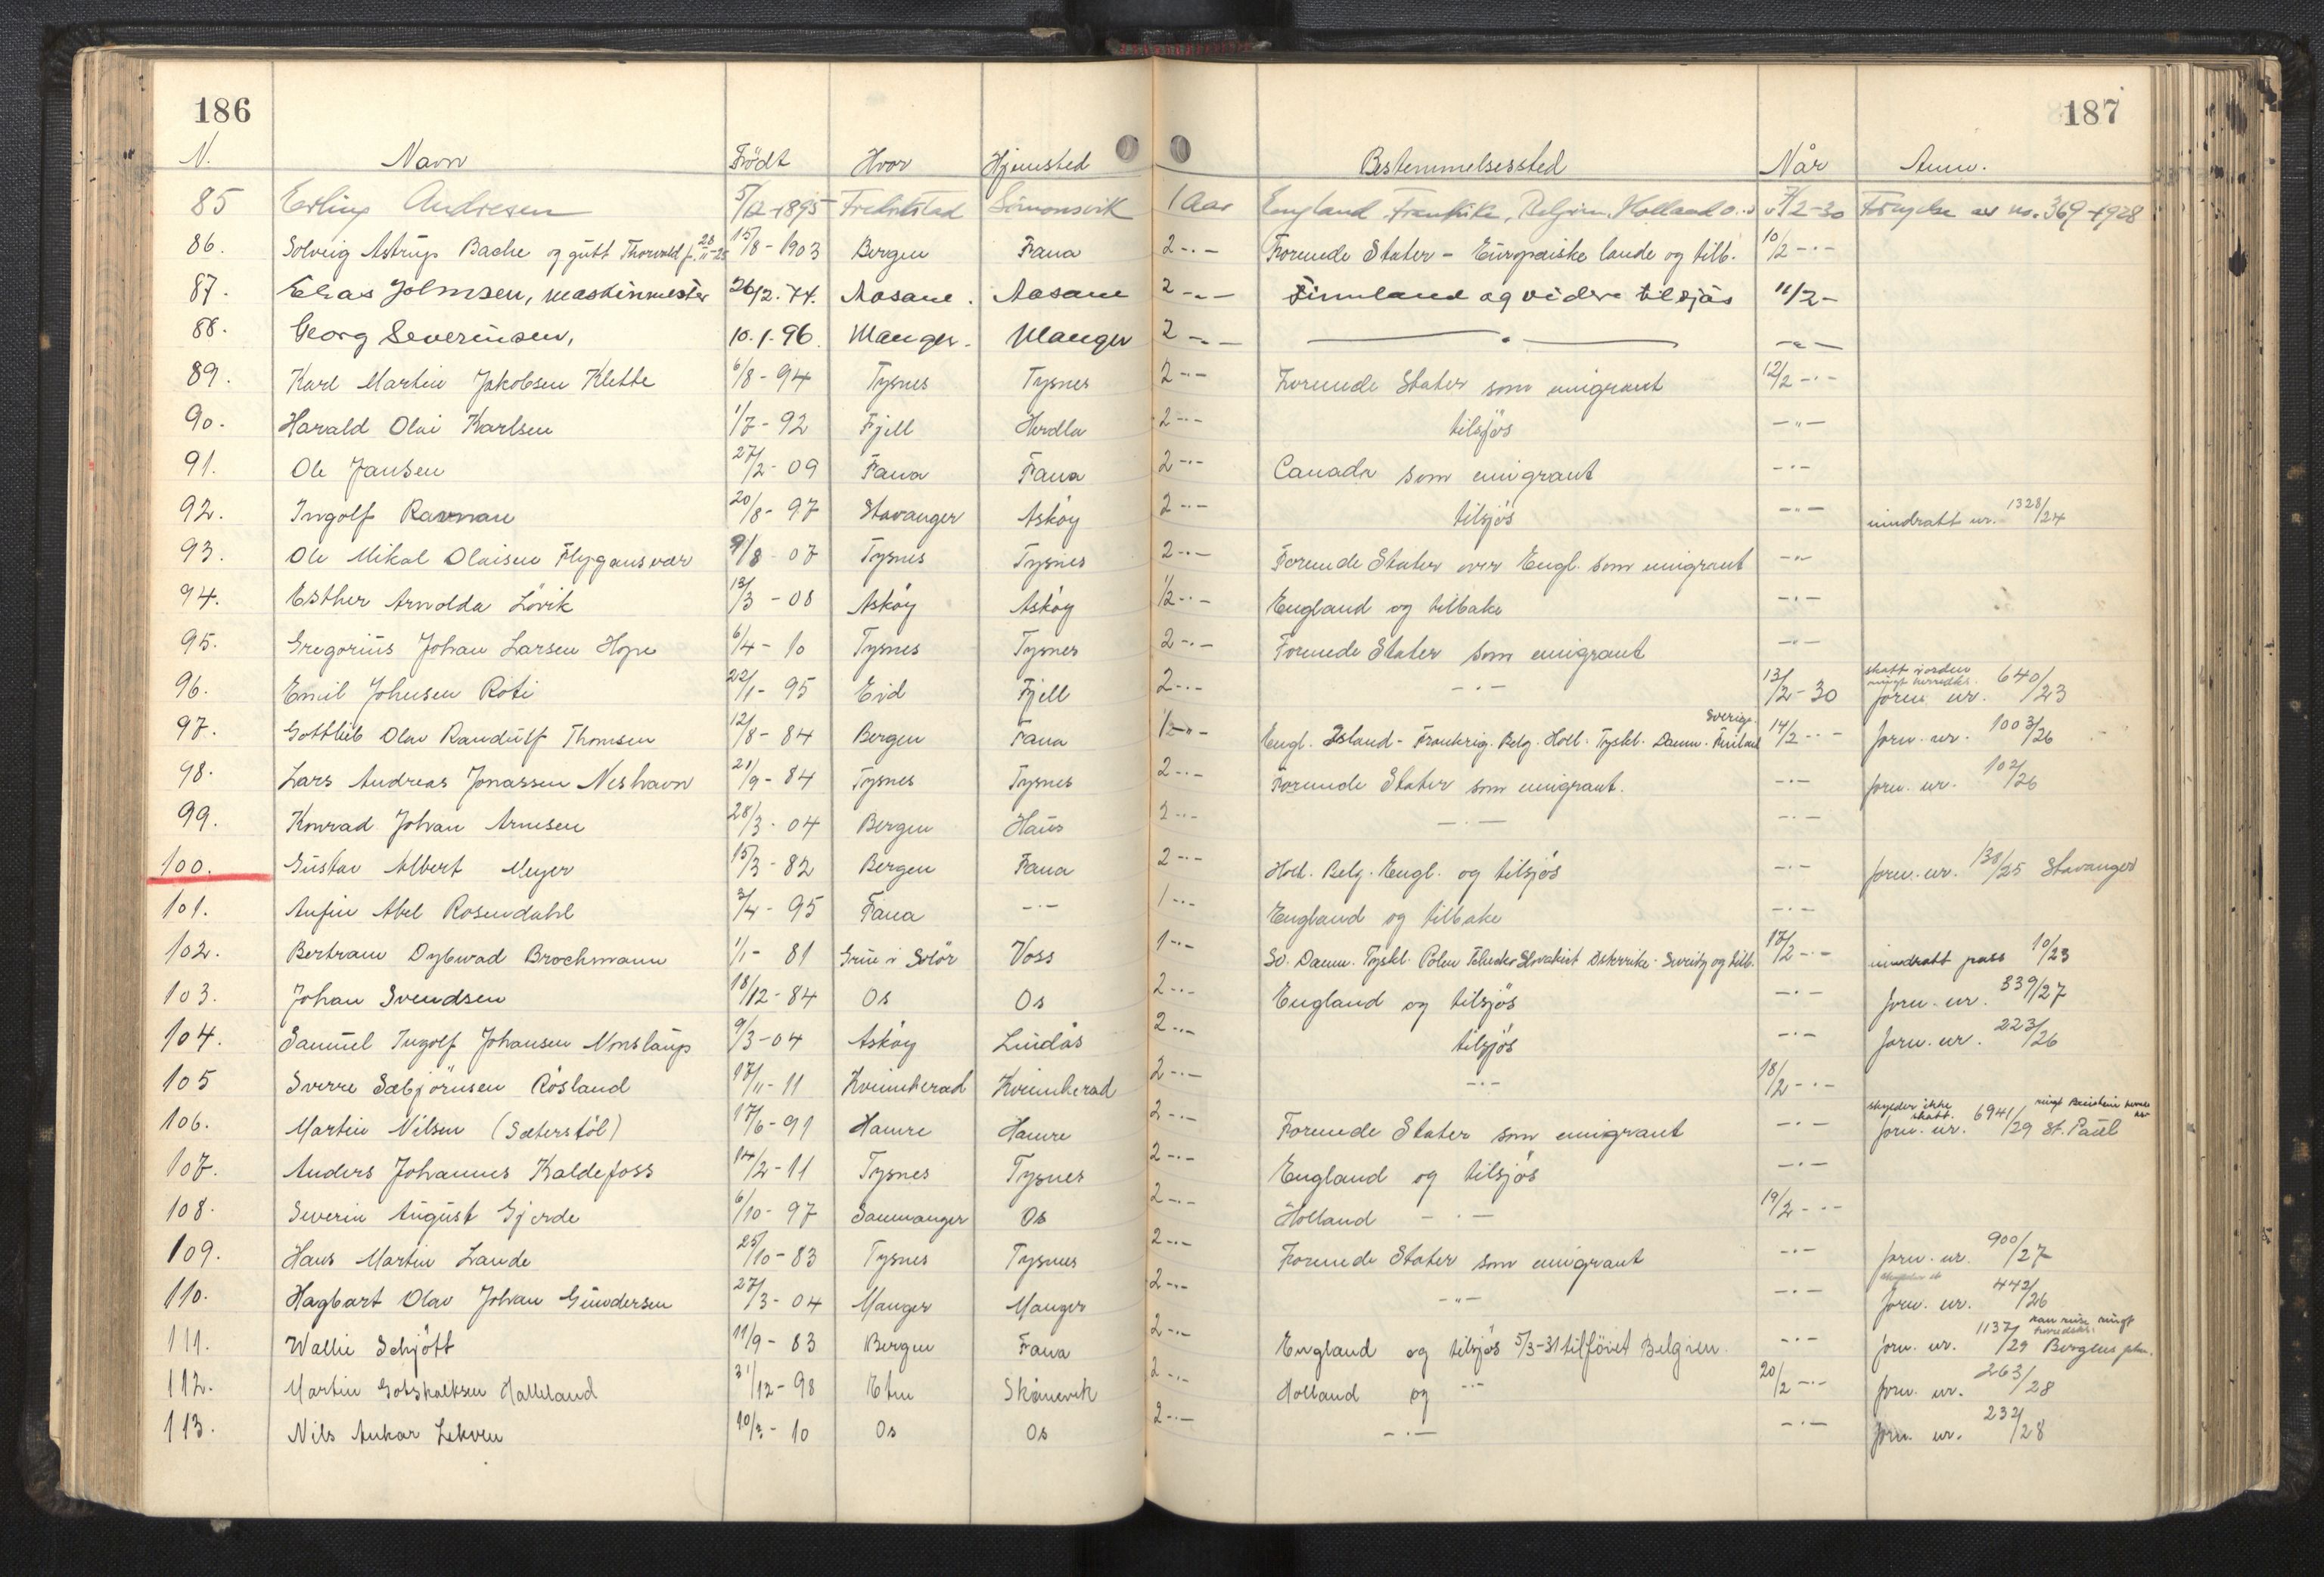 186
187
N. Navn Födt Hvor Hjemsted Bestemmelsessted Når Anm.
85 Erling Andresen 5/12-1895 Fredrikstad Simonsvik 1 Aar England Frankrike, Belgien, Holland 7/2-30 Fornyelse av no. 369-1928
86. Solveig Astrup Bache og gutt Thorvald f. 28/11-25 15/8-1903 Bergen Fana 2-"- Forenede Stater - Europæiske lande og tilb. 10/2 -"-
87. Elias Johnsen, maskinmester 26/2.74. Aasane. Aasane 2-"- Finnland og videre tilsjös 11/2-
88. Georg Severinsen, 10.1.96. Manger. Manger 2-"- -"- -"-
89. Karl Martin Jakobsen Klette 6/8-94 Tysnes Tysnes 2-"- Forenede Stater som emigrant 12/2-"-
90. Harald Olai Karlsen 1/7-92 Fjell Herdla 2-"- tilsjös -"-
91. Ole Jansen 27/2-09 Fana Fana 2-"- Canada som emigrant -"-
92. Ingolf Ravnan 20/8-97 Stavanger Asköy 2-"- tilsjös -"- inndratt nr. 1328/24
93. Ole Mikal Olaisen Flygansvær 9/8-07 Tysnes Tysnes 2-"- Forenede Stater over Engl. som emigrant -"-
94. Esther Arnolda Lövik 13/3-08 Asköy Asköy 1/2-"- England og tilbake -"-
95. Gregorius Johan Larsen Hope 6/4-10 Tysnes Tysnes 2-"- Forenede Stater som emigrant -"-
96. Emil Johnsen Roti 22/1-95 Eid Fjell 2-"- -"- 13/2-30 skatt i orden forn. nr. 640/23
97. Gottlieb Olav Randulf Thomsen 12/8-84 Bergen Fana 1/2-"- Engl. Island - Frankrig. Belg. Holl. Tyskl. Danm. Sverige Finland 14/2-"- forn. nr. 1003/26
98. Lars Andreas Jonassen Neshavn 21/9-84 Tysnes Tysnes 2-"- Forenede Stater som emigrant. -"- forn. nr. 102/26
99. Konrad Johan Arnesen 28/3-04 Bergen Haus 2-"- -"- -"-
100. Gustav Albert Meyer 15/3-82 Bergen Fana 2-"- Holl. Belg. Engl. og tilsjös -"- forn. nr. 138/25 Stavanger
101. Anfin Abel Rosendahl 3/4-95 Fana -"- 1-"- England og tilbake -"-
102. Bertram Dybwad Brochmann 1/1-81 Grue i Solör Voss 1-"- Sv. Danm. Tyskl. Polen Tschecko Slovakiet Österrike - Sveitz og tilb. 17/2-"- inndratt pass 10/23
103. Johan Svendsen 18/12-84 Os Os 2-"- England og tilsjös -"- forn. nr. 839/27
104. Samuel Ingolf Johansen Monslaup 9/3-04 Asköy Lindås 2-"- tilsjös -"- forn. nr. 223/26
105 Sverre Sæbjörnsen Rösland 17/11-11 Kvinnherad Kvinnherad 2-"- -"- 18/2-"-
106. Martin Nilsen (Sæterstöl) 17/6-91 Hamre Hamre 2-"- Forenede Stater som emigrant -"- skylder ikke skatt. forn. nr. 6941/29 St. Paul
107. Anders Johannes Kaldefoss 14/2-11 Tysnes Tysnes 2-"- England og tilsjös -"-
108. Severin August Gjerde 6/10-97 Samnanger Os 2-"- Holland -"- 19/2-"-
109. Hans Martin Lande 25/10-83 Tysnes Tysnes 2-"- Forenede Stater som emigrant -"- forn. nr. 900/27
110. Hagbart Olav Johan Gundersen 27/3-04 Manger Manger 2-"- -"- -"- forn. nr. 442/26
111. Wallie Schjött 11/9-83 Bergen Fana 2-"- England og tilsjös 5/3-31 tilföiet Belgien. -"- forn. nr. 1137/29 Bergens
112. Martin Gotskalksen Halleland 31/12-98 Etne Skånevik 2-"- Holland og -"- 20/2-"- forn. nr. 263/28
113. Nils Ankar Lekven 10/3-10 Os Os 2-"- -"- -"- forn. nr. 232/28